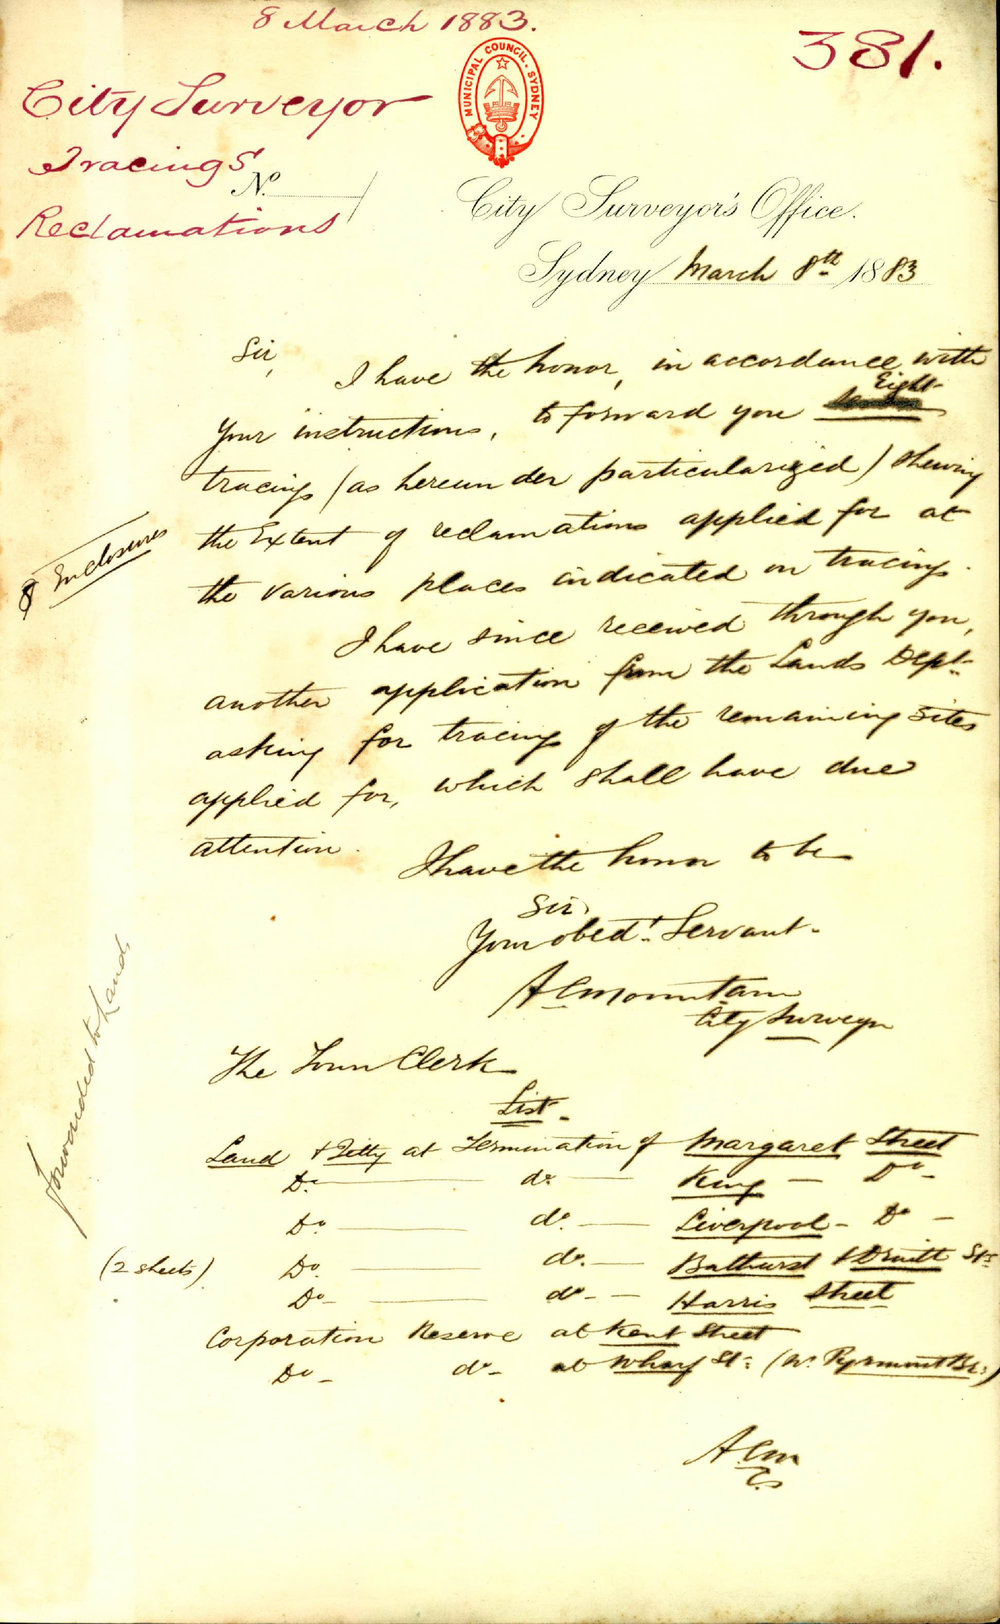 8 March 1883.
381.
City Surveyor
Tracings
Reclamations
MUNICIPAL COUNCIL. SYDNEY
No.
City Surveyor's Office.
Sydney March 8th 1883
Sir,
I have the honor, in accordance with
your instructions, to forward you Eight
tracings (as hereunder particularized) shewing
the Extent of reclamations applied for at
the various places indicated on tracings.
8 Enclosures
I have since received through you,
another application from the Lands Dept.
asking for tracings of the remaining sites
applied for, which shall have due
attention.
I have the honor to be
Sir,
Your obedt. Servant.
A C Mountain
City Surveyor
The Town Clerk
forwarded to Lands
List.
Land & Jetty at Termination of Margaret Street
Do. do. King Do.
Do. do. Liverpool Do.
(2 sheets) Do. do. Bathurst & Druitt Sts.
Do. do. Harris Street
Corporation Reserve at Kent Street
Do. do. at Wharf St: (Nr. Pyrmont Br:)
A.C.M
C.S